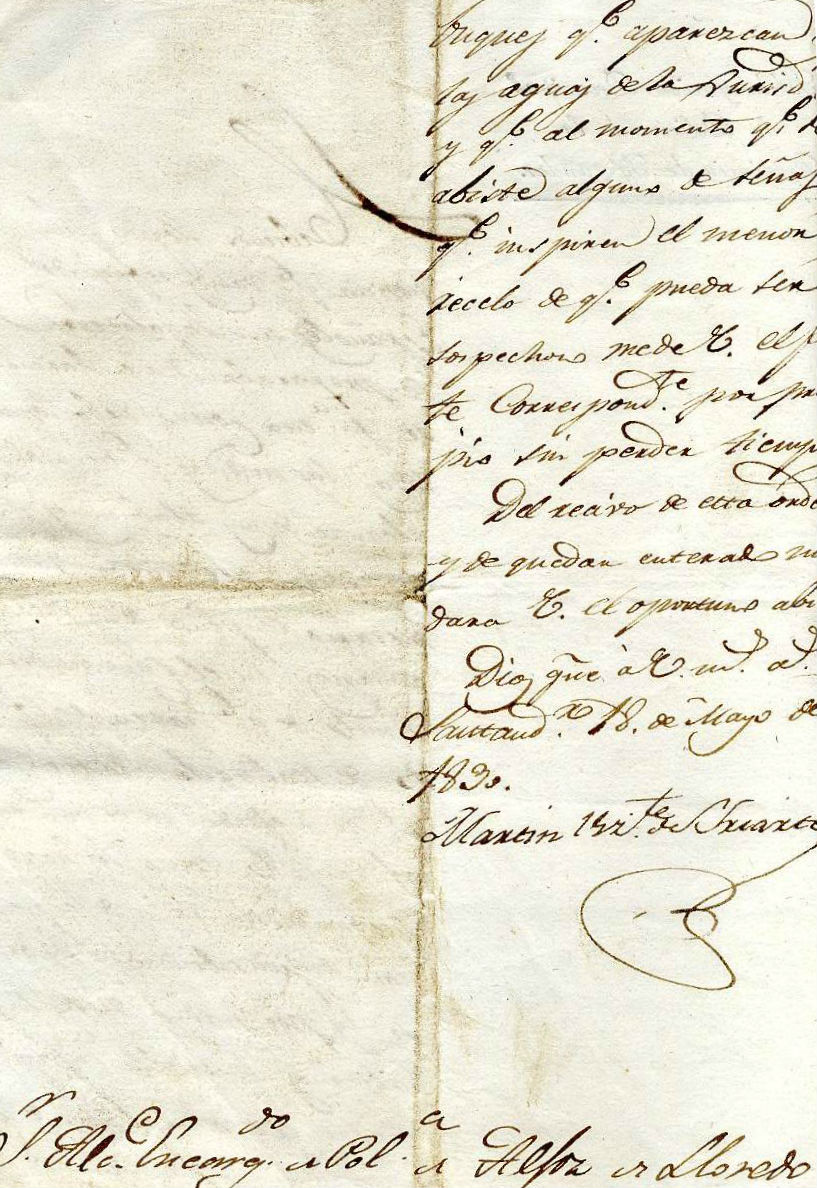 buques q.e aparezcan
las aguas de la Jurisd
y q.e al momento q.e se
abiste alguno de señas
q.e inspiren el menor
recelo de q.e pueda ser
sospechoso me de V. el p
te Correspond.te por pro
pio sin perder tiemp
Del recivo de esta orde
y de quedar enterado m
dara V. el oportuno abi
Dios gũe à V. m.s a.s
Santand.r 18. de Mayo de
1830.
Martin de Uriarte
S.r Alc.e Encarg.do de Pol.a de Alfoz de Lloredo